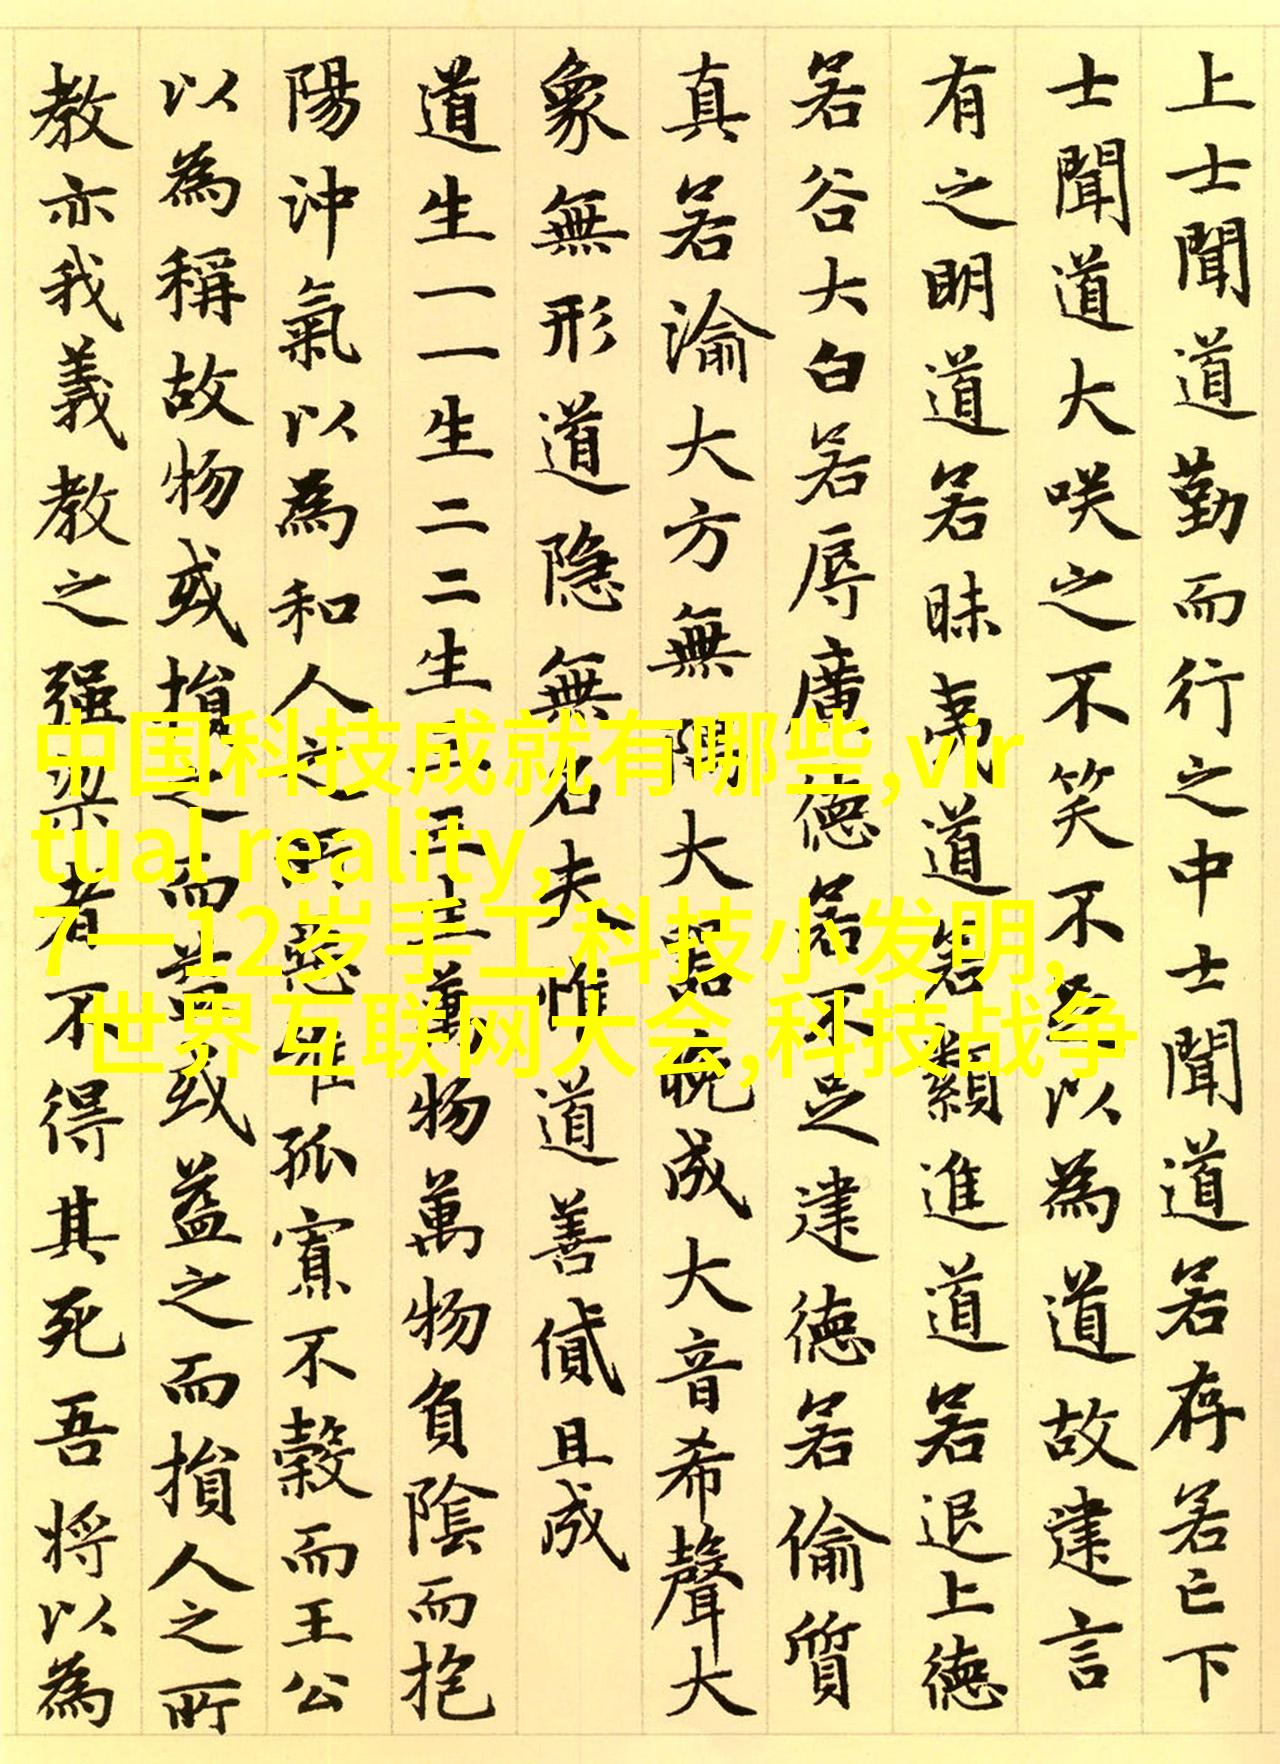 上士聞道勤而行之中士聞道若存若亡下
士聞道大咲之不笑不足以為道故建言
有之明道若昧夷道若類進道若退上德
若谷大白若辱廣德若不足建德若偷質
真若渝大方無隅大器晚成大音希聲大
象無形道隐無名夫惟道善貸且成
道生一一生二二生三三生萬物萬物負陰而抱
陽沖氣以為和人之所惡唯孤寡不穀而王公
以為稱故物或損之而益或益之而損人之所
教亦我義教之强梁者不得其死吾将以為
中国科技成就有哪些,vir
tual reality,
7一12岁手工科技小发明,
世界互联网大会,科技战争